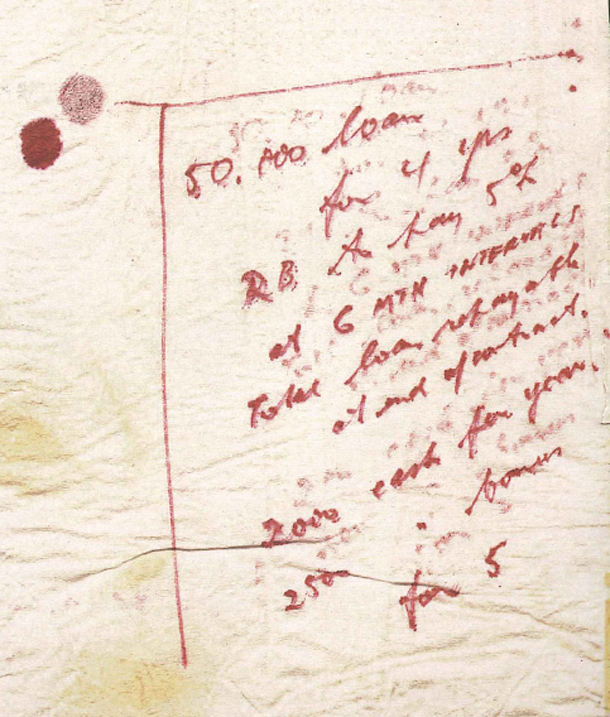 50.000 loan
for 4 yrs
RB to pay 5%
at 6 MTH INTERVALS
Total loan repayable
at end of contract.
2000 cash for year.
" bonus
2500 for 5